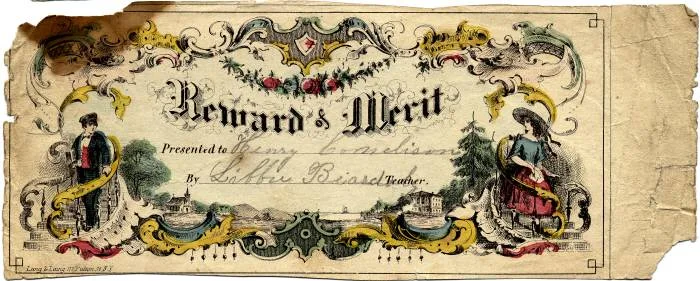 Reward & Merit
Presented to Henry Cornelison
By Libbie Beard Teacher.
Lang & Laing 117 Fulton St. N.Y.